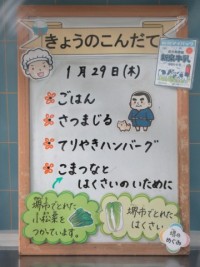 きょうのこんだて
1月29日(木)
ごはん
さつまじる
てりやきハンバーグ
こまつなと
はくさいのいために
堺市でとれた
小松菜を
つかっています。
堺市でとれた
はくさい
堺の
めぐみ